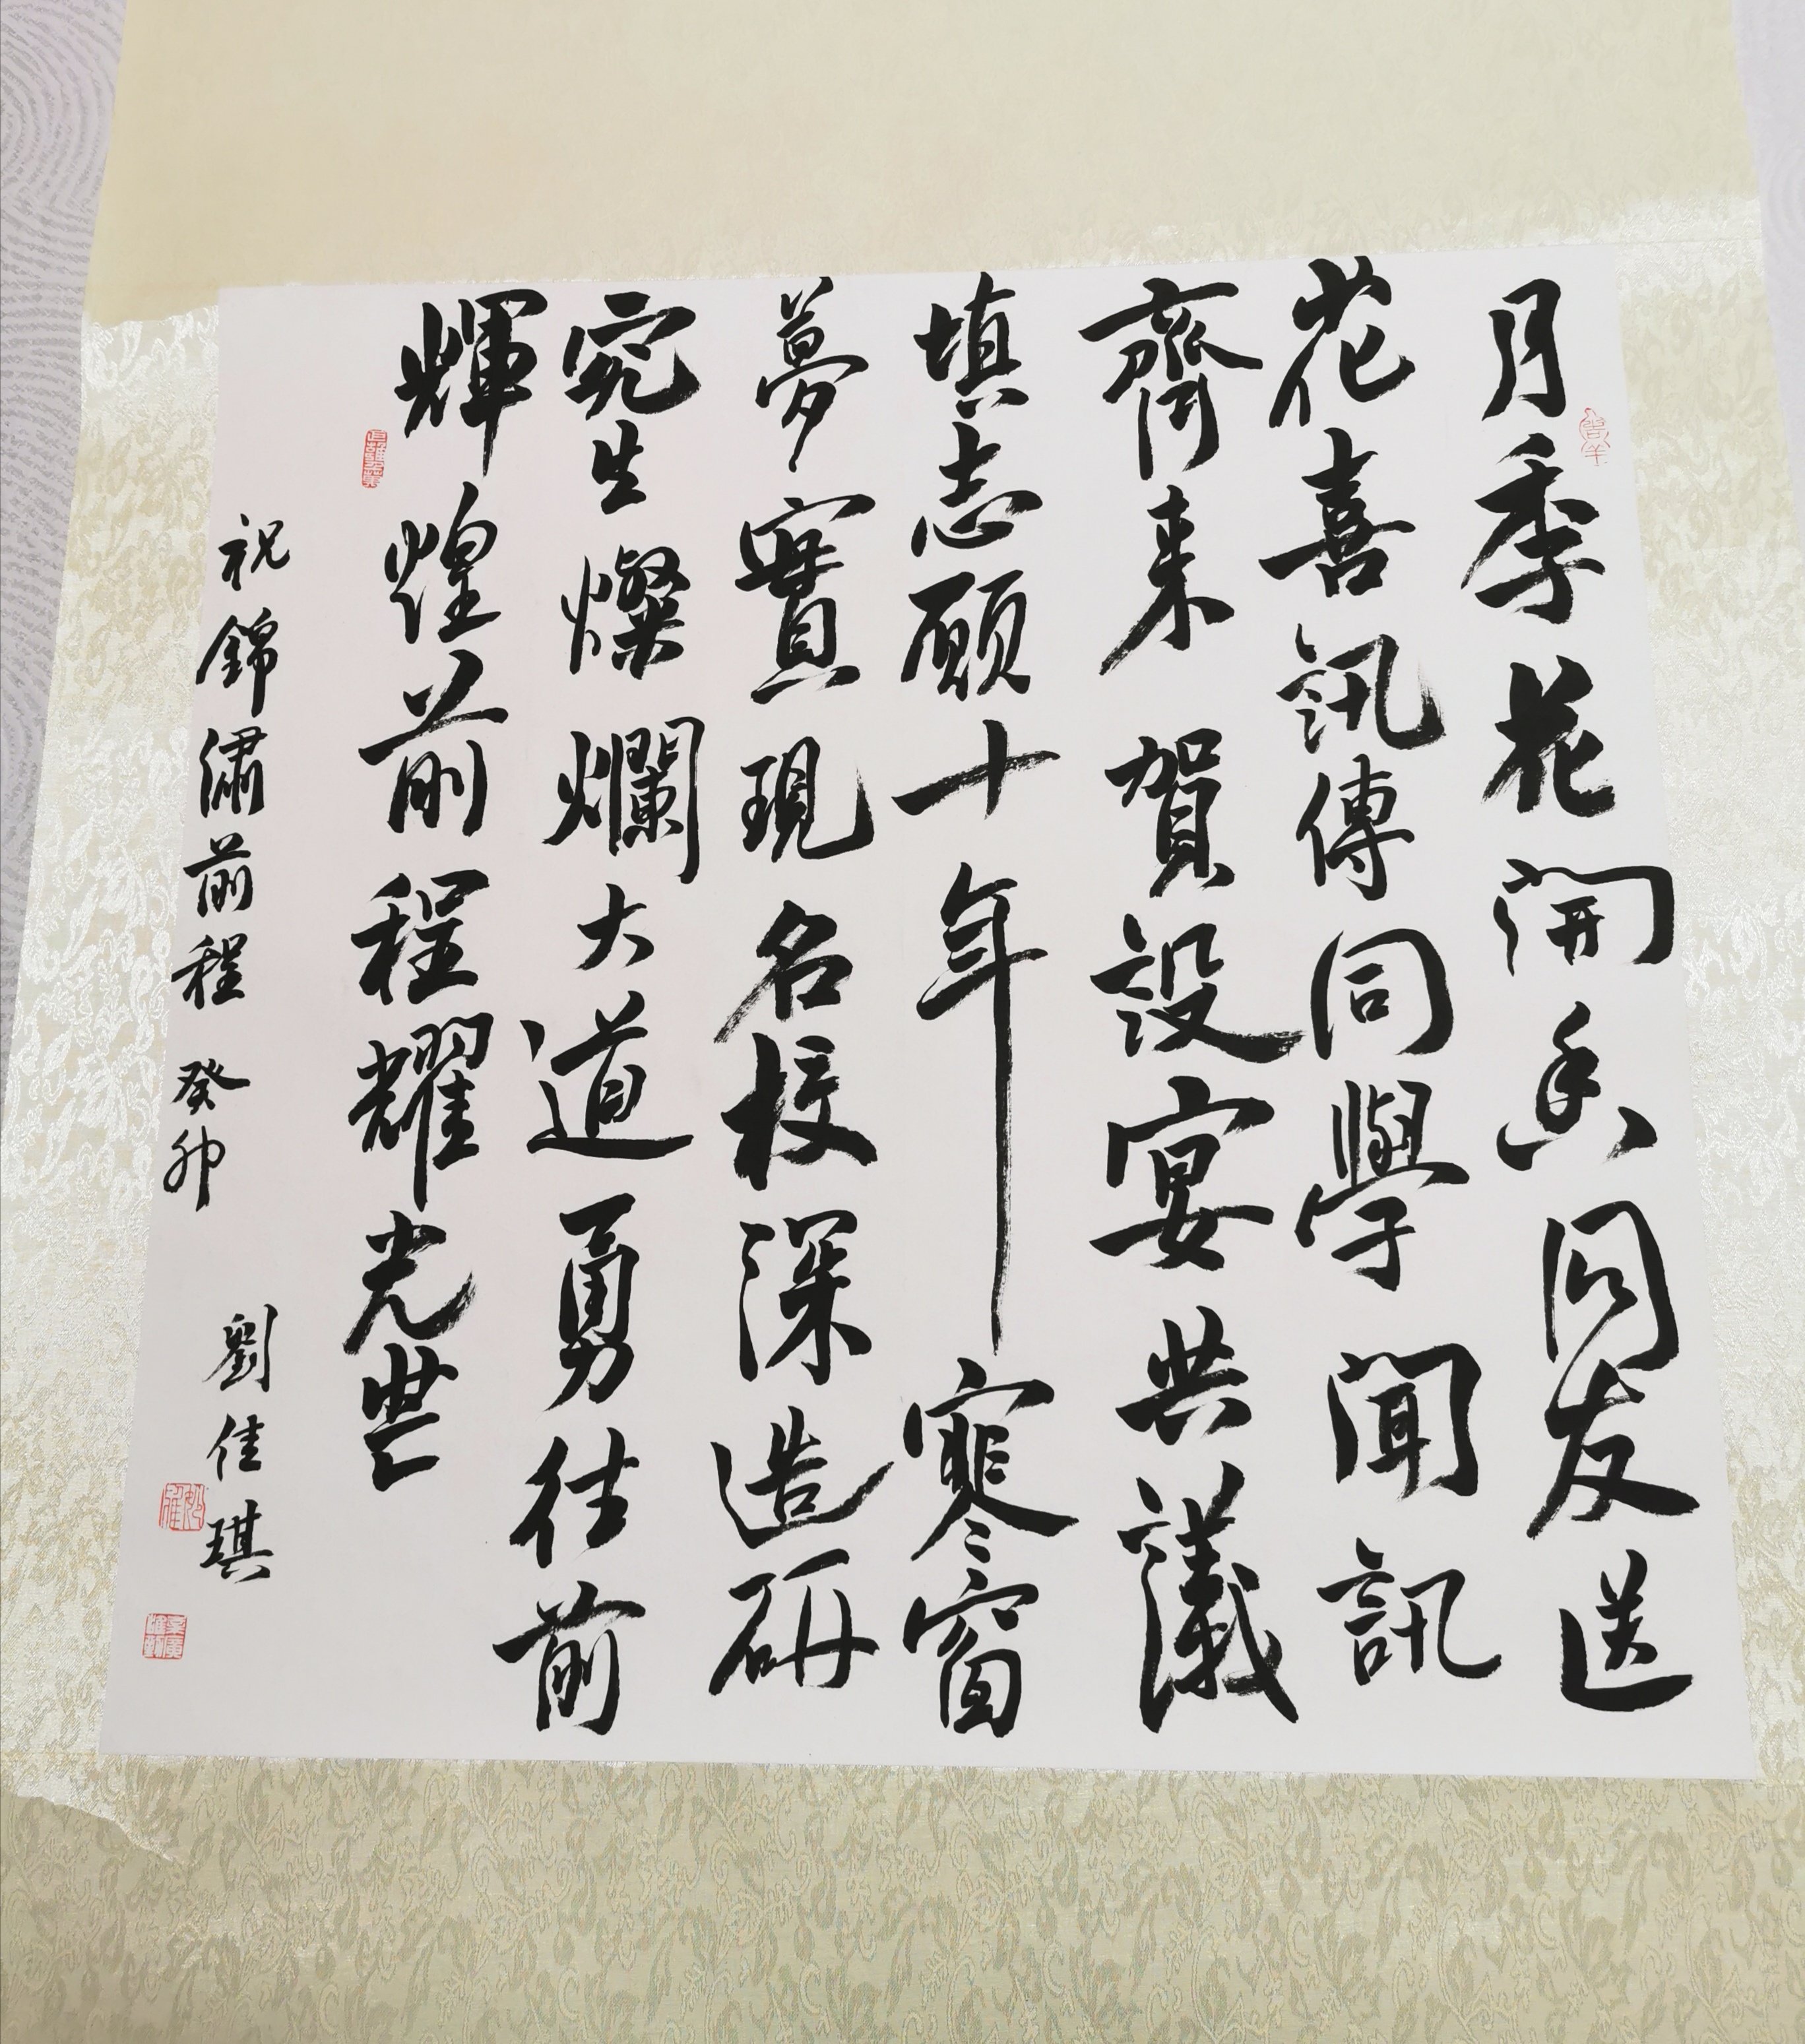 月季花開香友送
花喜訊傳同學聞訊
齊来賀設宴共議
填志願十年寒窗
夢實現名校深造研
究生燦爛大道勇往前
輝煌前程耀光芒
祝錦繡前程 癸卯 劉佳琪